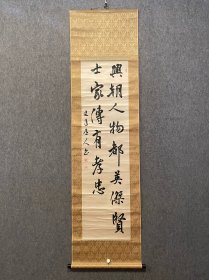 興朝人物都英傑賢
士家傳有孝忠